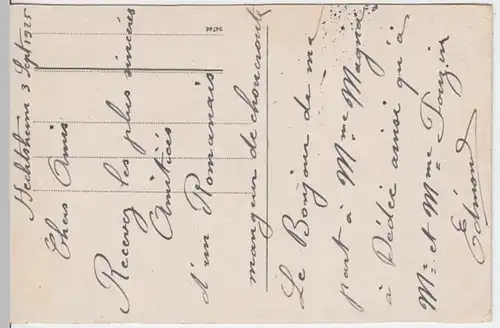 Hechtsheim 3 Sept 1925
Chers Amis
Recevez les plus sincères
Amitiés
d'un Romanais
mangeur de choucroute
Le Bonjour de ma
part à Mme Magnat
à Dédée ainsi qu'à
Mr et Mme Pouzin
Edmond
94746